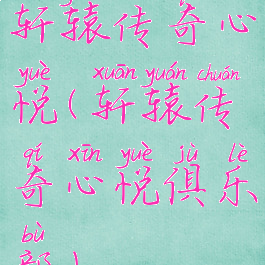 轩辕传奇心
yuè xuān yuán chuán
悦(轩辕传
qí xīn yuè jù lè
奇心悦俱乐
bù
部)